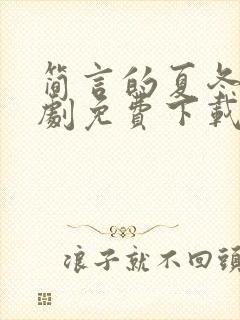 简言的夏冬
劇免費下載
浪子就不回頭